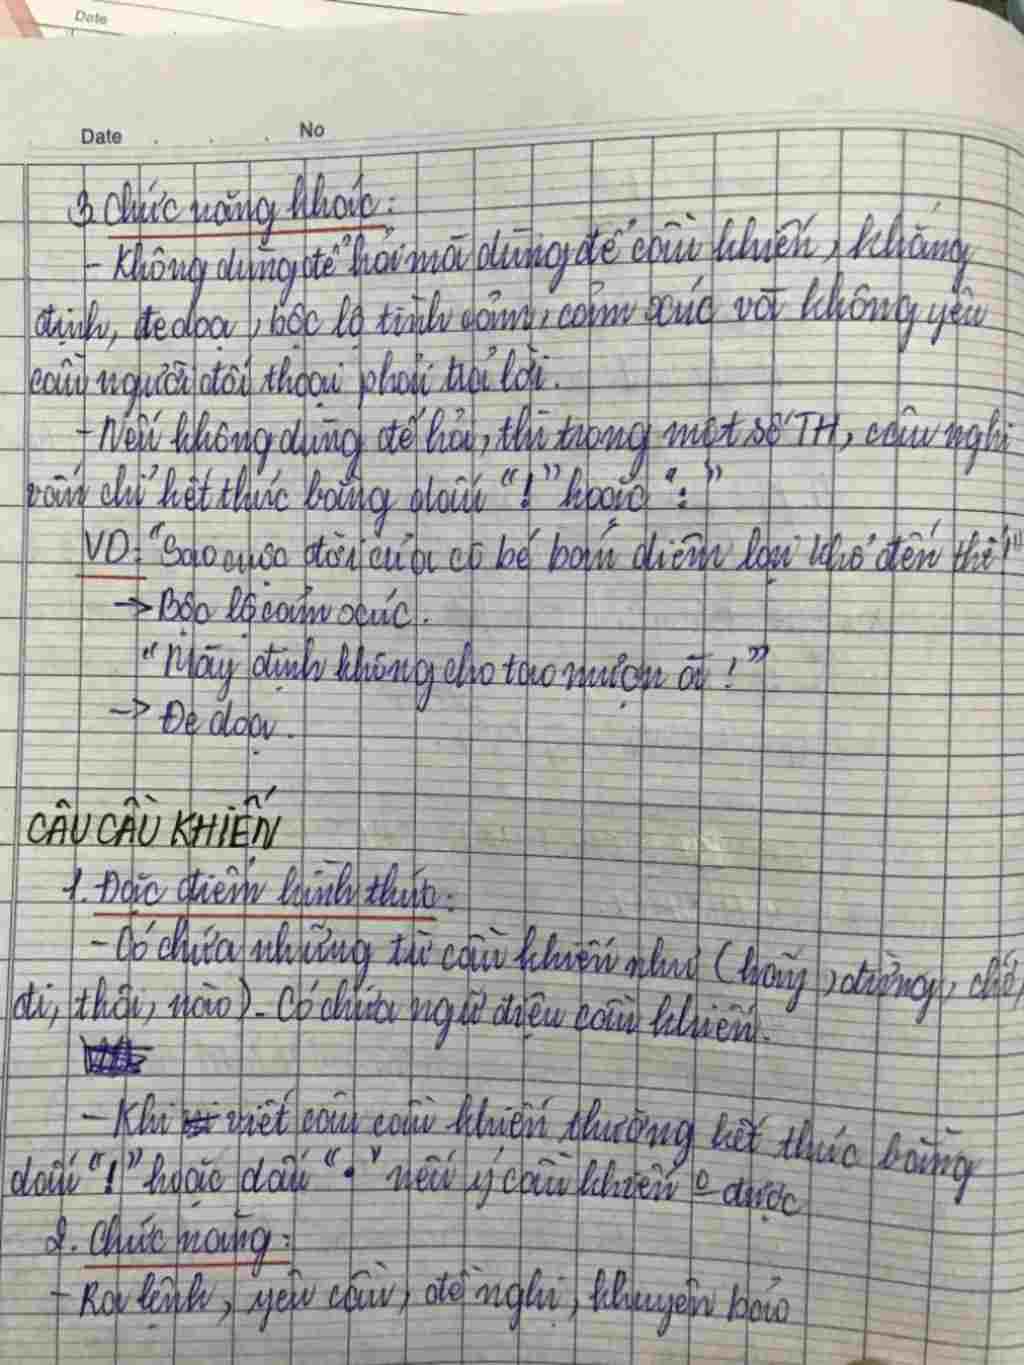 Date
Date . . . No
3. Chức năng khác:
- Không dùng để hỏi mà dùng để cầu khiến, khẳng
định, đe doạ, bộc lộ tình cảm, cảm xúc và không yêu
cầu người đối thoại phải trả lời.
- Nếu không dùng để hỏi, thì trong một số TH, câu nghi
vấn chỉ kết thúc bằng dấu "!" hoặc ":"
VD: "Sao cuộc đời của cô bé bán diêm lại khổ đến thế!"
-> Bộc lộ cảm xúc.
"Mày định không cho tao mượn à!"
-> Đe doạ.
CÂU CẦU KHIẾN
1. Đặc điểm hình thức:
- Có chứa những từ cầu khiến như (hãy, đừng, chớ,
đi, thôi, nào) - Có chứa ngữ điệu cầu khiến.
- Khi viết câu cầu khiến thường kết thúc bằng
dấu "!" hoặc dấu "." nếu ý cầu khiến o được
2. Chức năng:
- Ra lệnh, yêu cầu, đề nghị, khuyên bảo